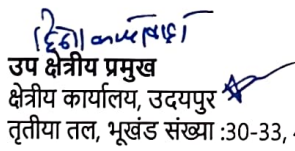 उप क्षेत्रीय प्रमुख
क्षेत्रीय कार्यालय, उदयपुर
तृतीया तल, भूखंड संख्या :30-33,